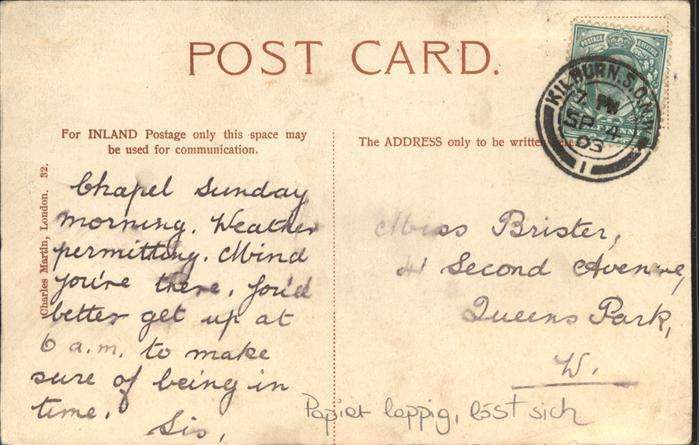 POST CARD.
POSTAGE REVENUE
KILBURN. S.O.N.W
7 PM
SP 4
03
1
For INLAND Postage only this space may
be used for communication.
The ADDRESS only to be written
Charles Martin, London. 32.
Chapel Sunday
morning. Weather
permitting. Mind
you're there. You'd
better get up at
6 a.m. to make
sure of being in
time.
Sis.
Miss Brister,
41 Second Avenue,
Queens Park,
W.
Papier lappig, löst sich